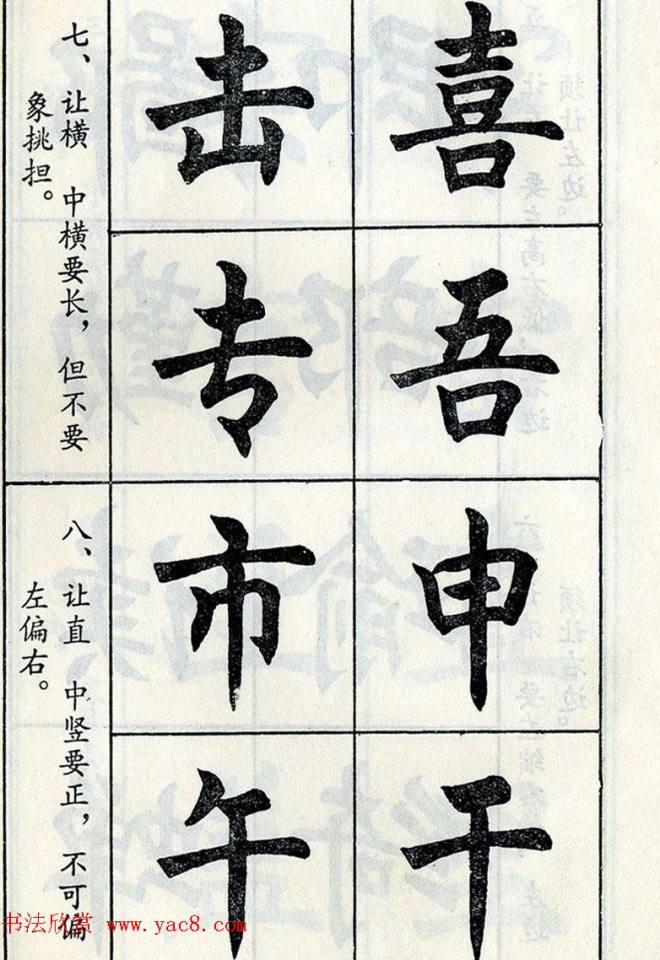 喜吾
击专
七、让横 中横要长，但不要
象挑担。
申干
市午
八、让直 中竖要正，不可偏
左偏右。
书法欣赏 www.yac8.com